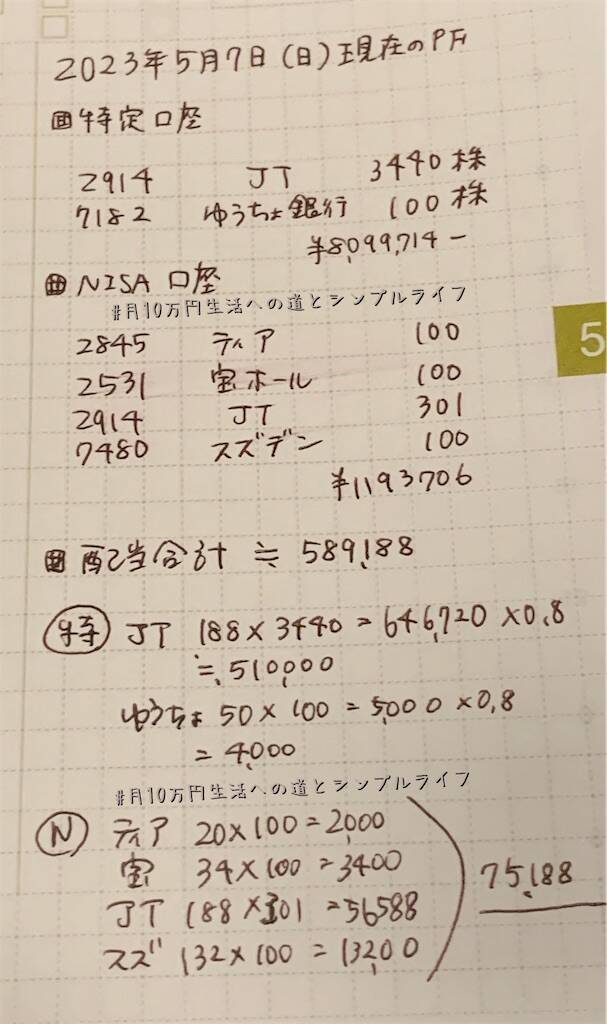 2023年5月7日(日)現在のPF
特定口座
2914 JT 3440株
7182 ゆうちょ銀行 100株
¥8,099,714-
NISA口座
#月10万円生活への道とシンプルライフ
2845 ティア 100
2531 宝ホール 100
2914 JT 301
7480 スズデン 100
¥1193706
5
配当合計 ≒ 589,188
特 JT 188×3440=646,720×0.8
≒510,000
ゆうちょ 50×100=5,000×0.8
=4,000
#月10万円生活への道とシンプルライフ
N ティア 20×100=2,000
宝 34×100=3400
JT 188×301=56588
スズ 132×100=13,200
75,188